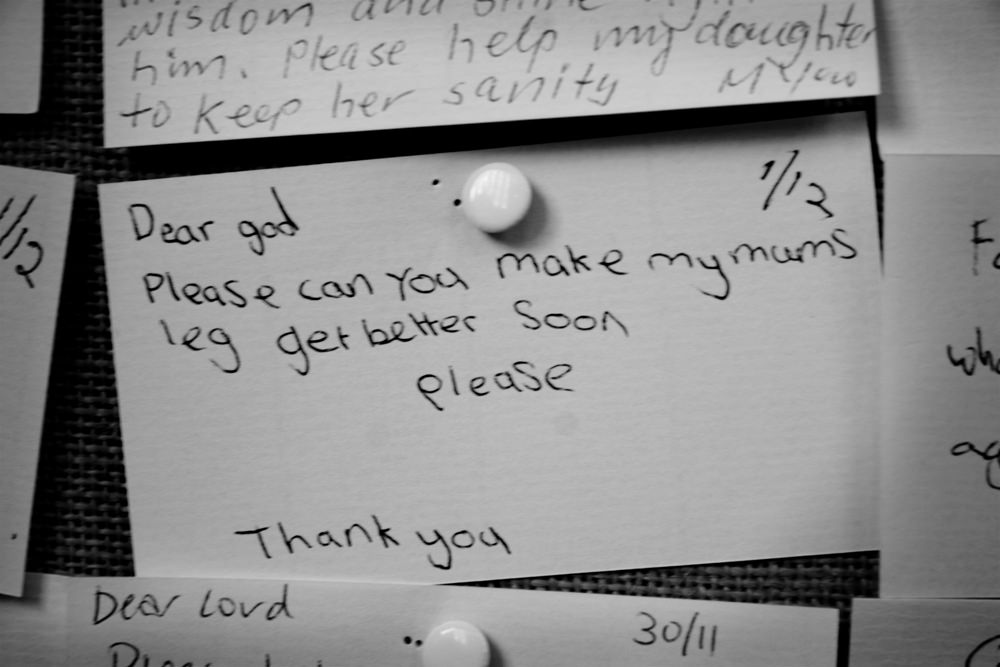 wisdom and shine
him. Please help my daughter
to keep her sanity
1/12
Dear god
Please can you make my mums
leg get better soon
please
Thank you
Dear Lord
30/11